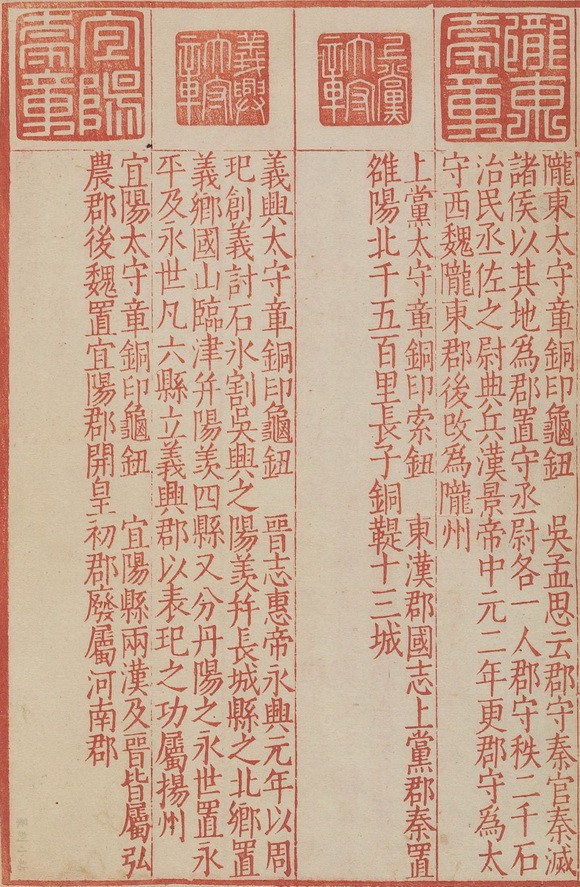 隴東太守章
隴東太守章銅印龜鈕　吳孟思云郡守秦官秦滅
諸侯以其地為郡置守丞尉各一人郡守秩二千石
治民丞佐之尉典兵漢景帝中元二年更郡守為太
守西魏隴東郡後改為隴州
上黨太守章
上黨太守章銅印索鈕　東漢郡國志上黨郡秦置
雒陽北千五百里長子銅鞮十三城
義興太守章
義興太守章銅印龜鈕　晉志惠帝永興元年以周
玘創義討石氷割吳興之陽羨幷長城縣之北鄉置
義鄉國山臨津幷陽羨四縣又分丹陽之永世置永
平及永世凡六縣立義興郡以表玘之功屬揚州
宜陽太守章
宜陽太守章銅印龜鈕　宜陽縣兩漢及晉皆屬弘
農郡後魏置宜陽郡開皇初郡廢屬河南郡